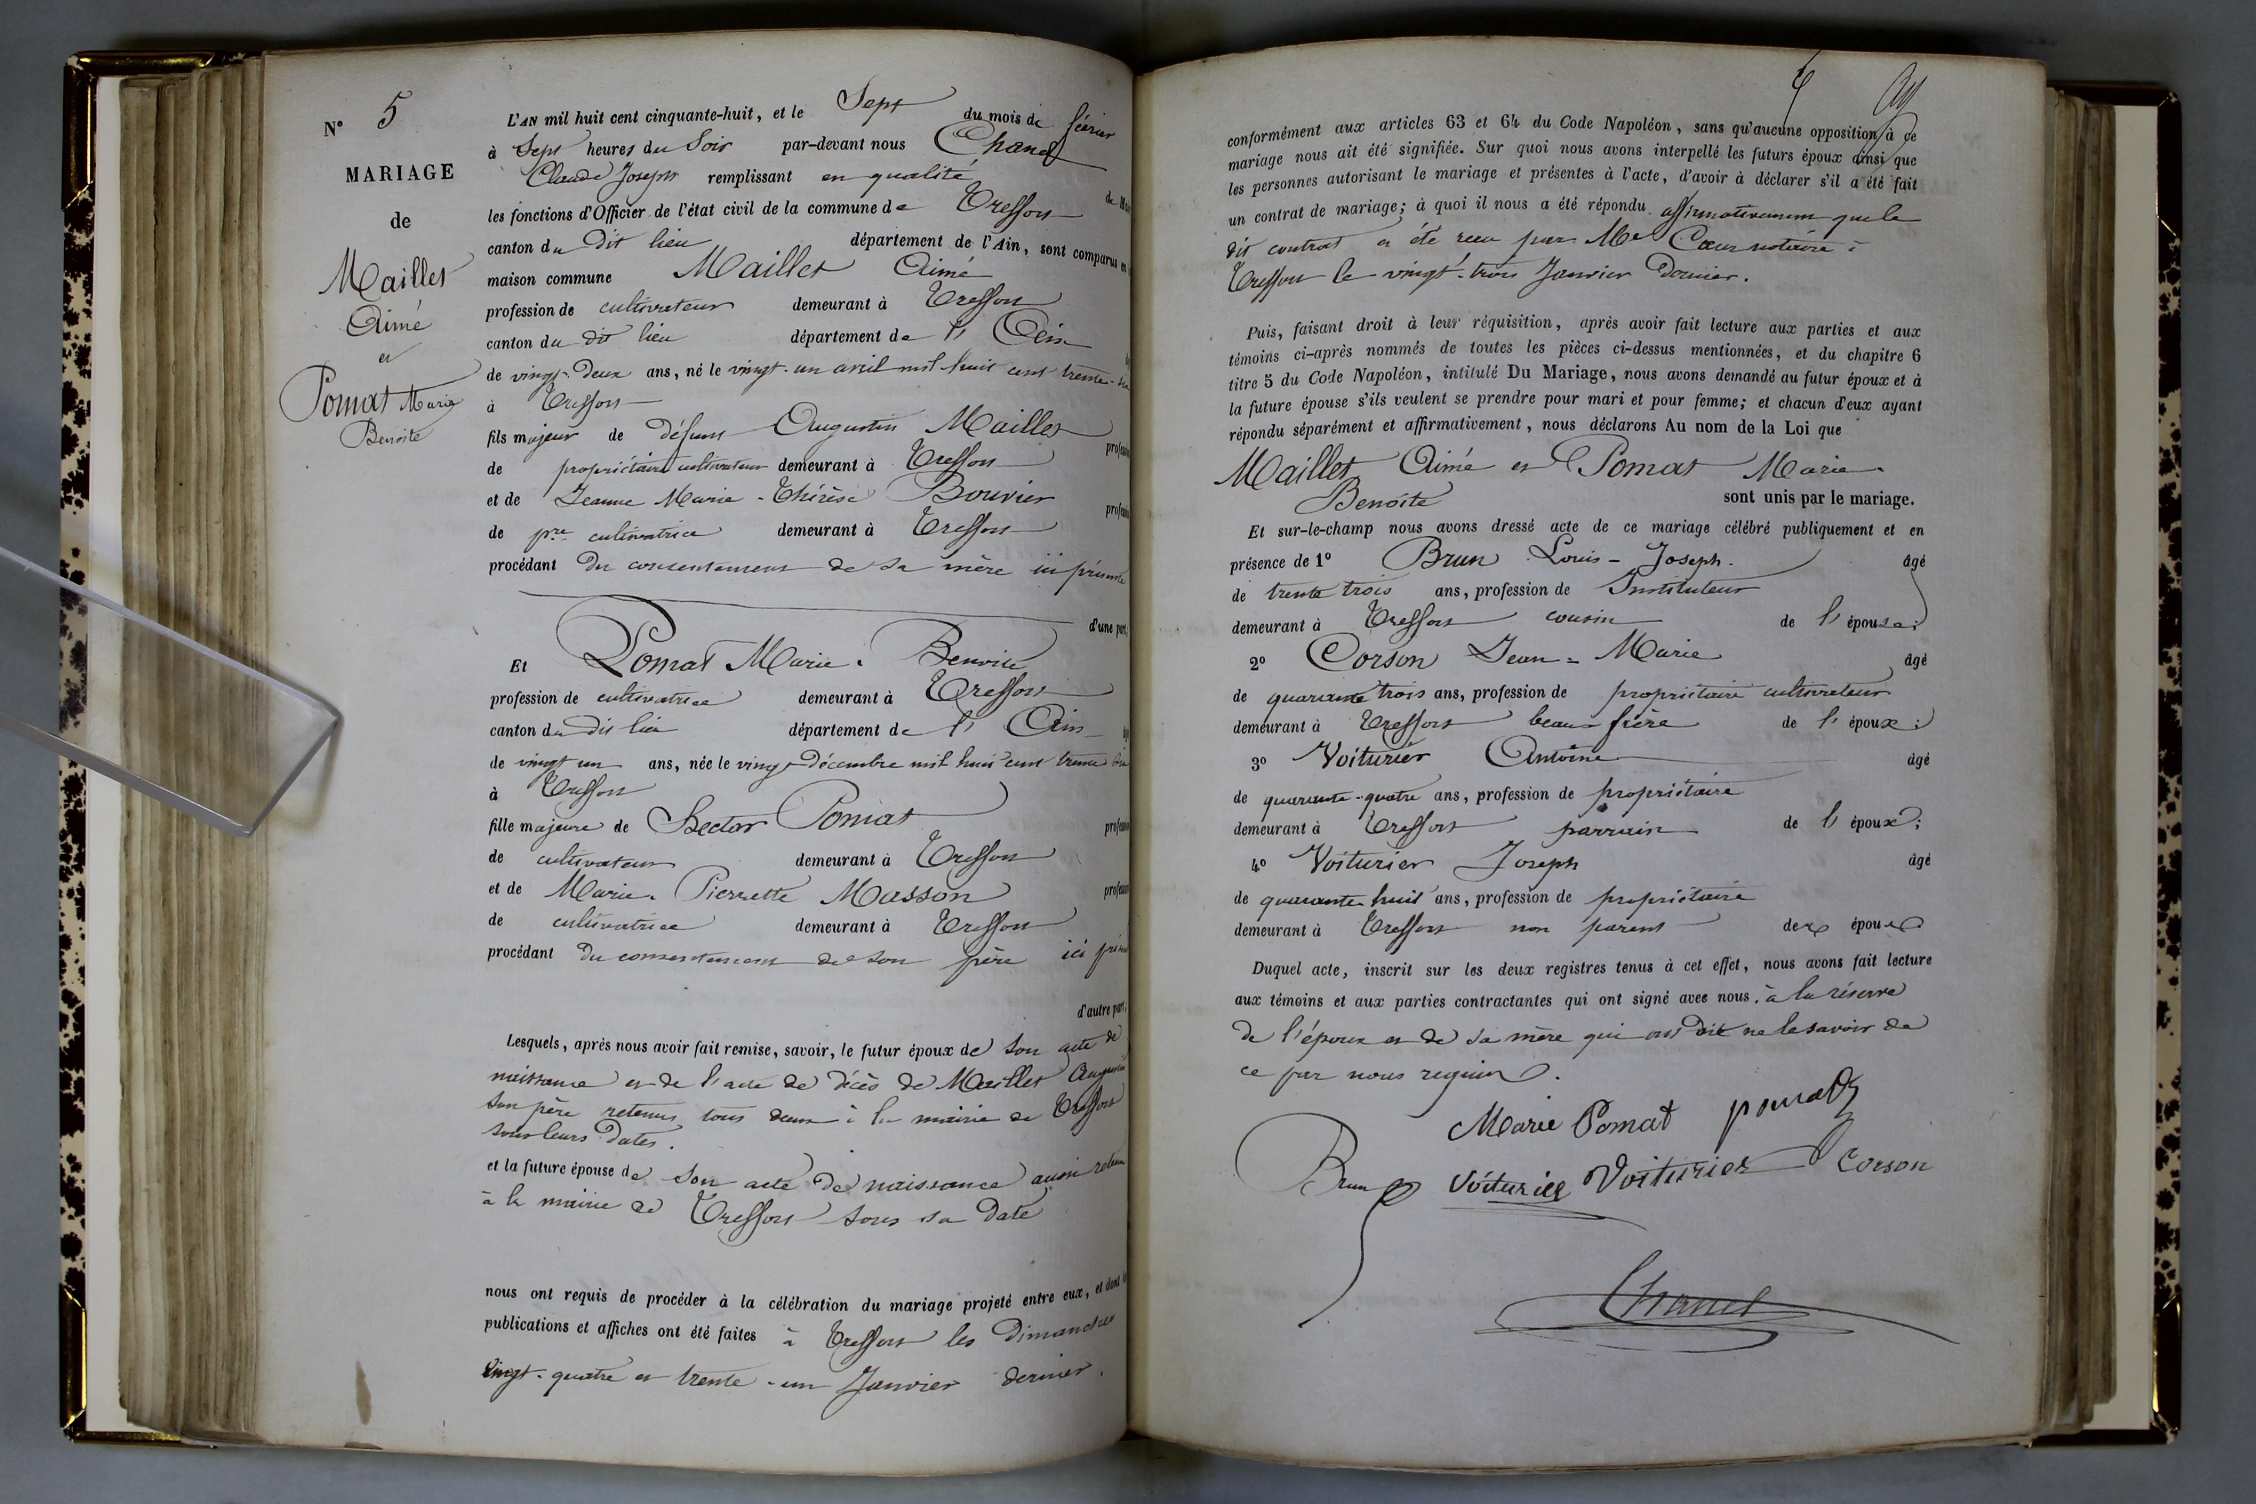 N° 5
MARIAGE
de
Maillet
Aimé
et
Pomat Marie
Benoite
L'AN mil huit cent cinquante-huit, et le Sept du mois de février
à Sept heures du Soir par-devant nous Chanel
Claude Joseph remplissant en qualité de
les fonctions d'Officier de l'état civil de la commune de Treffort
canton du dit lieu département de l'Ain, sont comparus en
maison commune Maillet Aimé
profession de cultivateur demeurant à Treffort
canton du dit lieu département de l' Ain
de vingt-deux ans, né le vingt-un avril mil huit cent trente-
à Treffort
fils majeur de défunt Augustin Maillet
de propriétaire cultivateur demeurant à Treffort
et de Jeanne Marie-Thérèse Bouvier
de pre cultivatrice demeurant à Treffort
procédant du consentement de sa mère ici présente
d'une part,
Et Pomat Marie-Benoite
profession de cultivatrice demeurant à Treffort
canton du dit lieu département de l' Ain
de vingt un ans, née le vingt décembre mil huit cent trente six
à Treffort
fille majeure de Hector Pomat
de cultivateur demeurant à Treffort
et de Marie-Pierrette Masson
de cultivatrice demeurant à Treffort
procédant du consentement de son père ici
d'autre part,
Lesquels, après nous avoir fait remise, savoir, le futur époux de son acte de
naissance et de l'acte de décès de Maillet Augustin
son père retenus tous deux à la mairie de Treffort
sous leurs dates.
et la future épouse de son acte de naissance aussi retenu
à la mairie de Treffort sous sa date
nous ont requis de procéder à la célébration du mariage projeté entre eux, et dont
publications et affiches ont été faites à Treffort les dimanches
vingt-quatre et trente-un Janvier dernier.
conformément aux articles 63 et 64 du Code Napoléon, sans qu'aucune opposition à ce
mariage nous ait été signifiée. Sur quoi nous avons interpellé les futurs époux ainsi que
les personnes autorisant le mariage et présentes à l'acte, d'avoir à déclarer s'il a été fait
un contrat de mariage; à quoi il nous a été répondu affirmativement que le
dit contrat a été recu par Me Cœur notaire à
Treffort le vingt-trois Janvier dernier.
Puis, faisant droit à leur réquisition, après avoir fait lecture aux parties et aux
témoins ci-après nommés de toutes les pièces ci-dessus mentionnées, et du chapitre 6
titre 5 du Code Napoléon, intitulé Du Mariage, nous avons demandé au futur époux et à
la future épouse s'ils veulent se prendre pour mari et pour femme; et chacun d'eux ayant
répondu séparément et affirmativement, nous déclarons Au nom de la Loi que
Maillet Aimé et Pomat Marie-
Benoite sont unis par le mariage.
Et sur-le-champ nous avons dressé acte de ce mariage célébré publiquement et en
présence de 1° Brun Louis-Joseph. âgé
de trente trois ans, profession de Instituteur
demeurant à Treffort cousin de l'épouse;
2° Corson Jean-Marie âgé
de quarante trois ans, profession de propriétaire cultivateur
demeurant à Treffort beau-frère de l'époux;
3° Voiturier Antoine âgé
de quarante-quatre ans, profession de propriétaire
demeurant à Treffort parrain de l'époux;
4° Voiturier Joseph âgé
de quarante-huit ans, profession de propriétaire
demeurant à Treffort non parent des époux
Duquel acte, inscrit sur les deux registres tenus à cet effet, nous avons fait lecture
aux témoins et aux parties contractantes qui ont signé avec nous, à la réserve
de l'époux et de sa mère qui ont dit ne le savoir de
ce par nous requis.
Marie Pomat pomat
Brun Voiturier Voiturier Corson
Chanel